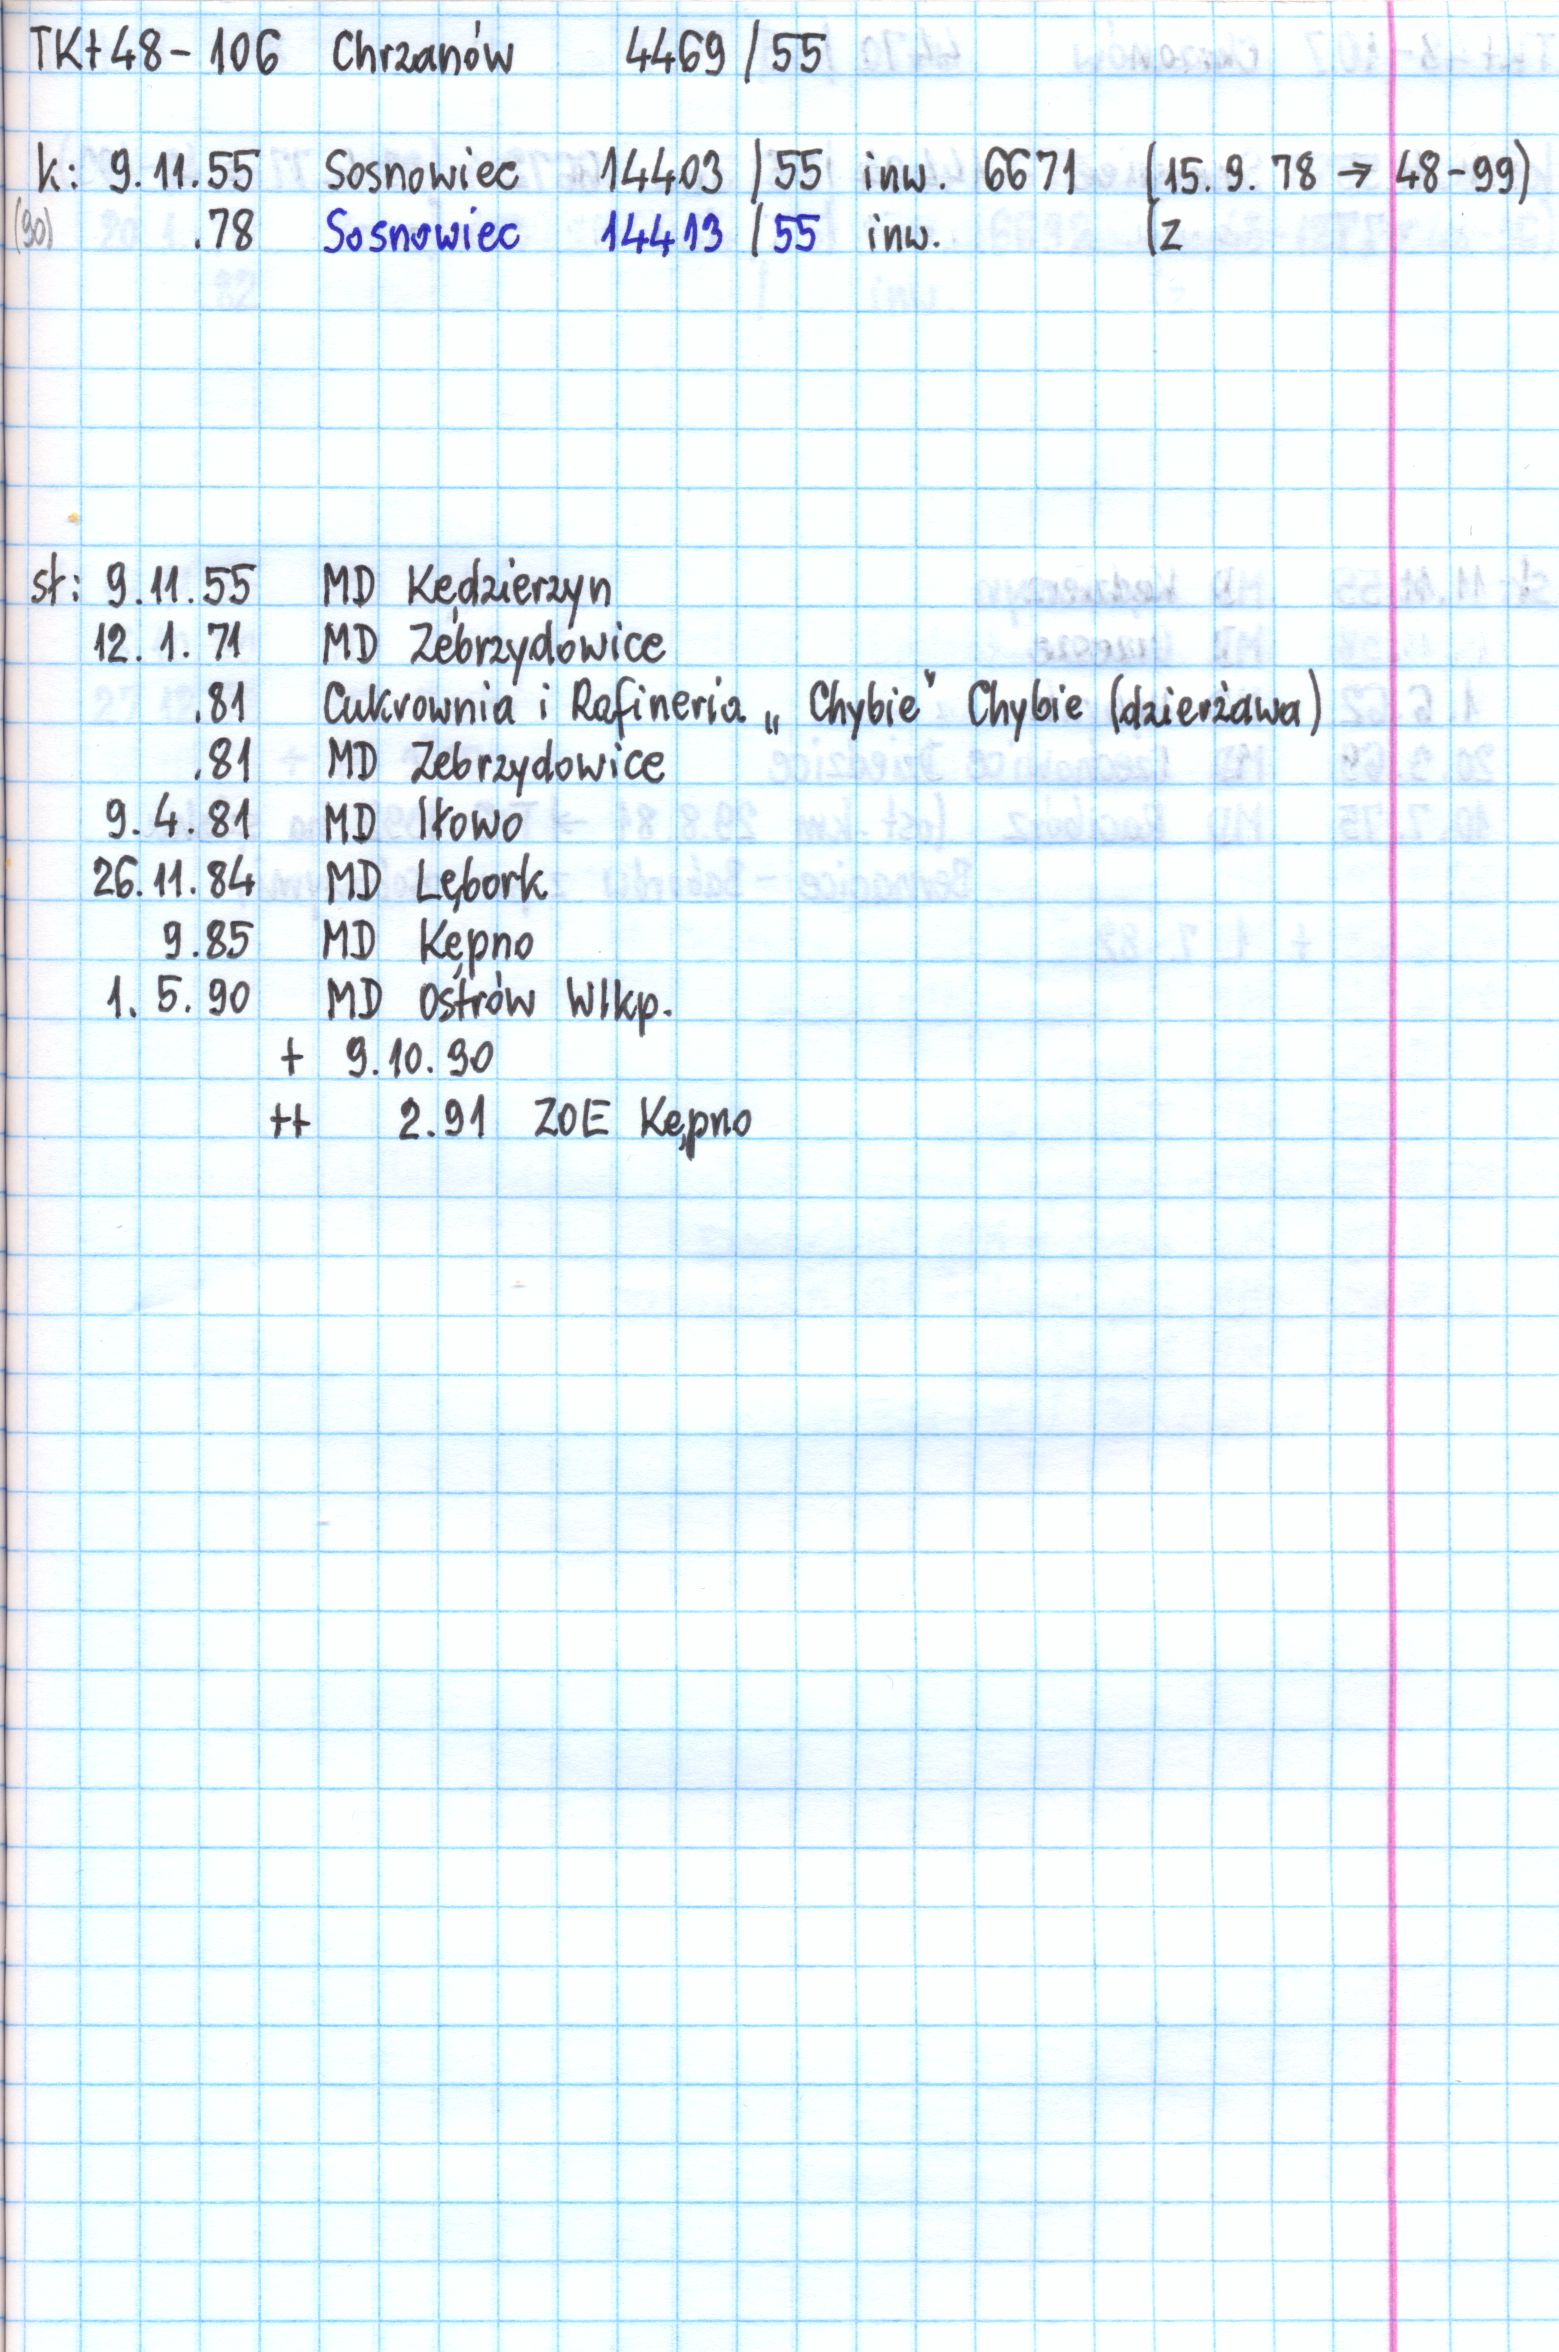 TKt48-106 Chrzanów 4469/55
k: 9.11.55 Sosnowiec 14403/55 inw. 6671 (15.9.78 → 48-99)
(90) .78 Sosnowiec 14413/55 inw. (z
st: 9.11.55 MD Kędzierzyn
12.1.71 MD Zebrzydowice
.81 Cukrownia i Rafineria „Chybie" Chybie (dzierżawa)
.81 MD Zebrzydowice
9.4.81 MD Iłowo
26.11.84 MD Lębork
9.85 MD Kępno
1.5.90 MD Ostrów Wlkp.
+ 9.10.90
++ 2.91 ZOE Kępno